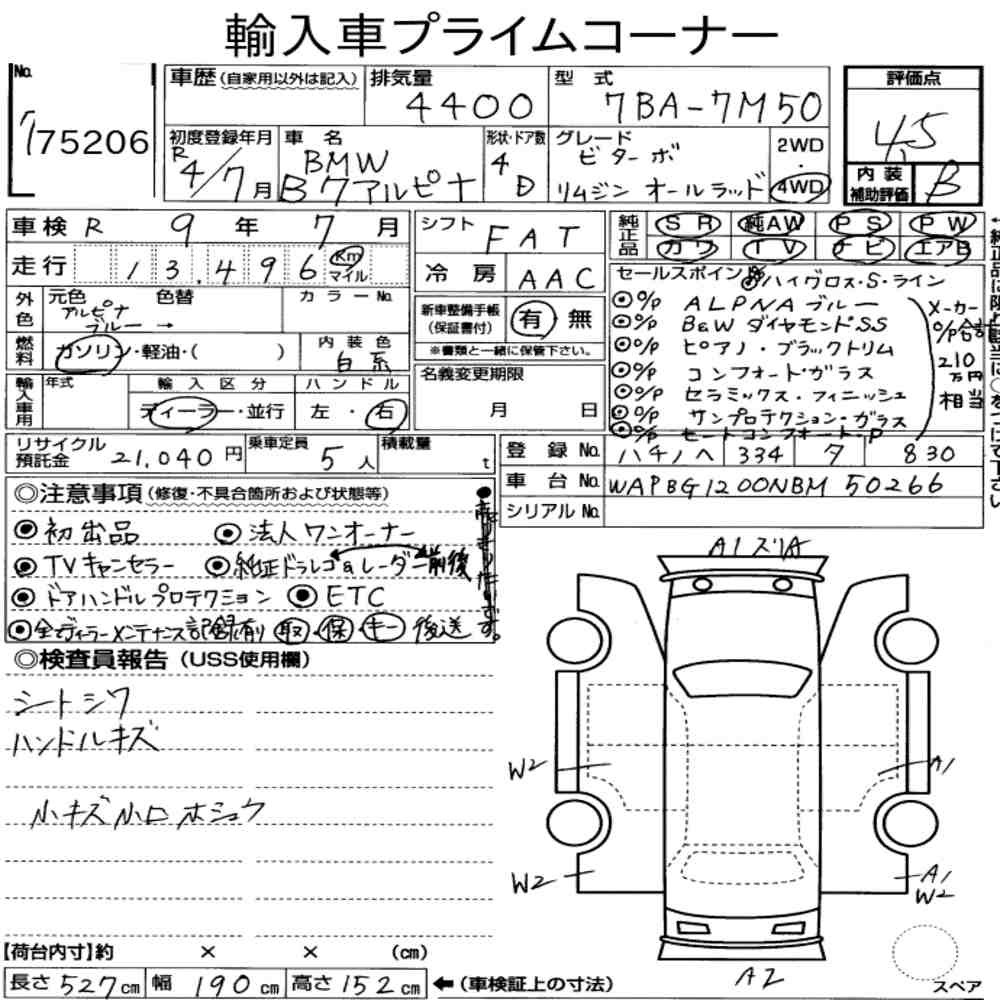 輸入車プライムコーナー
No.
75206
車歴(自家用以外は記入)
排気量
4400
型式
7BA-7M50
評価点
4.5
初度登録年月
R
4/7月
車名
BMW
B7アルピナ
形状・ドア数
4
D
グレード
ビターボ
リムジン オールラッド
2WD
・
4WD
内装
補助評価
B
車検 R 9 年 7 月
走行 13,496 Km
マイル
シフト FAT
冷房 AAC
純正品 SR 純AW PS PW
カワ TV ナビ エアB
外色
元色 色替
アルピナ
ブルー →
カラーNo.
燃料
ガソリン・軽油・( )
内装色
白系
新車整備手帳
(保証書付)
有 無
※書類と一緒に保管下さい。
名義変更期限
月 日
セールスポイント
ハイグロス・S・ライン
o/p ALPNA ブルー
o/p B&W ダイヤモンドSS
o/p ピアノ・ブラックトリム
o/p コンフォート・ガラス
o/p セラミックス・フィニッシュ
o/p サンプロテクション・ガラス
o/p セートコンフォート・P
メーカー
o/p合計
210
万円
相当
輸入車用
年式
輸入区分
ディーラー・並行
ハンドル
左・右
リサイクル
預託金 21,040 円
乗車定員 5 人
積載量 t
登録No. ハチノヘ 334 タ 830
車台No. WAPBG1200NBM50266
シリアルNo.
◎注意事項(修復・不具合箇所および状態等)
◉初出品 ◉法人ワンオーナー
◉TVキャンセラー ◉純正ドラレコ&レーダー前後
◉ドアハンドルプロテクション ◉ETC
◉全ディーラーメンテナンス記録有 取・保・キー 後送
◎検査員報告(USS使用欄)
シートシワ
ハンドルキズ
小キズ小ロホシュウ
A1 スリA
W2
A1
W2
A1
W2
A2
スペア
【荷台内寸】約 × × (cm)
長さ 527 cm 幅 190 cm 高さ 152 cm ←(車検証上の寸法)